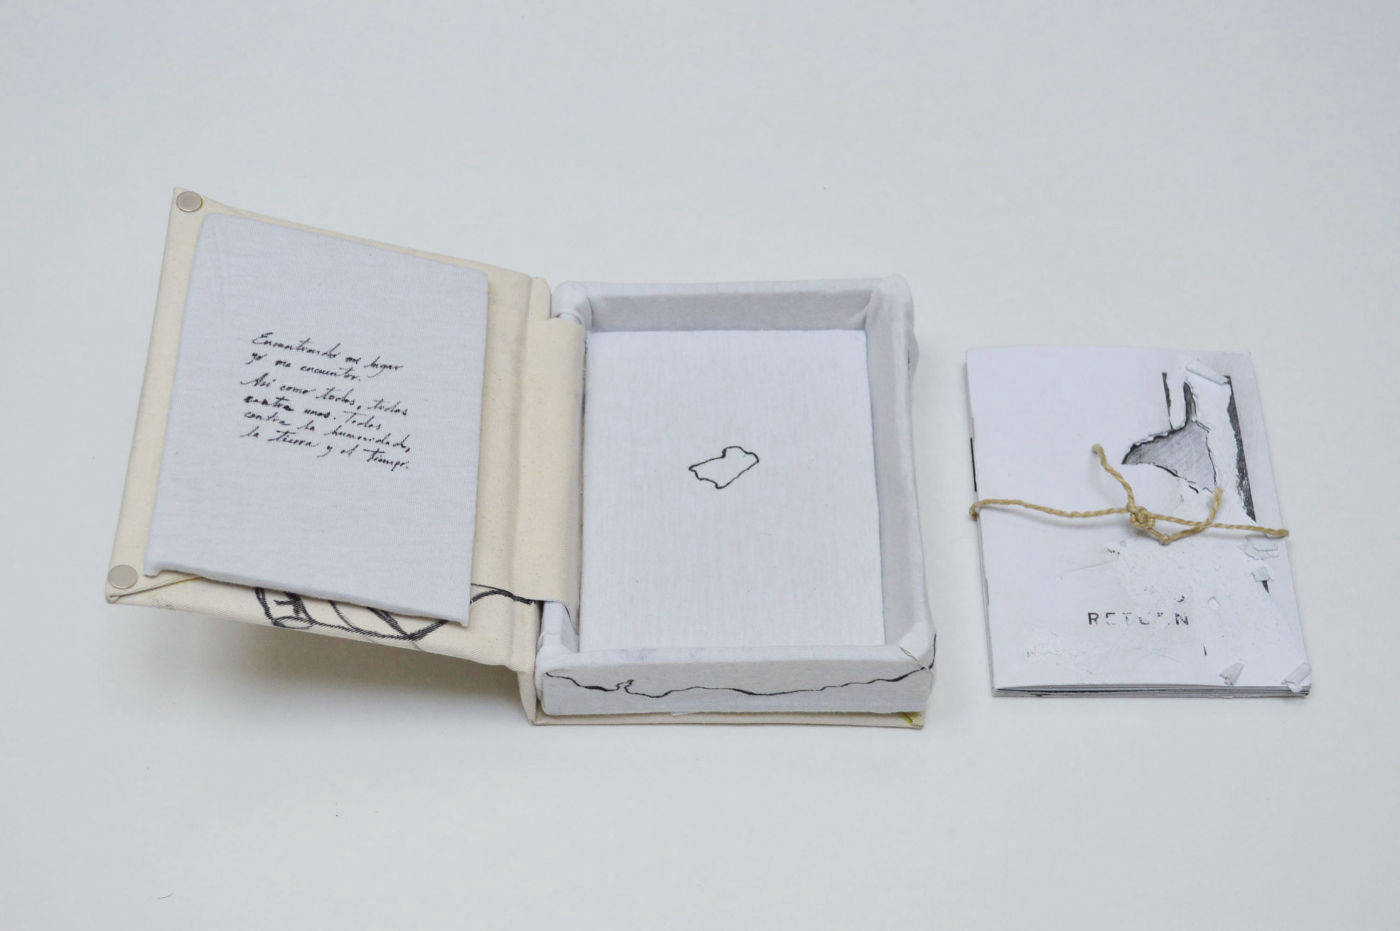 Encontrando mi lugar
yo me encuentro.
Así como todos, todos
contra unos. Todos
contra la humanidad,
la tierra y el tiempo.
RETURN